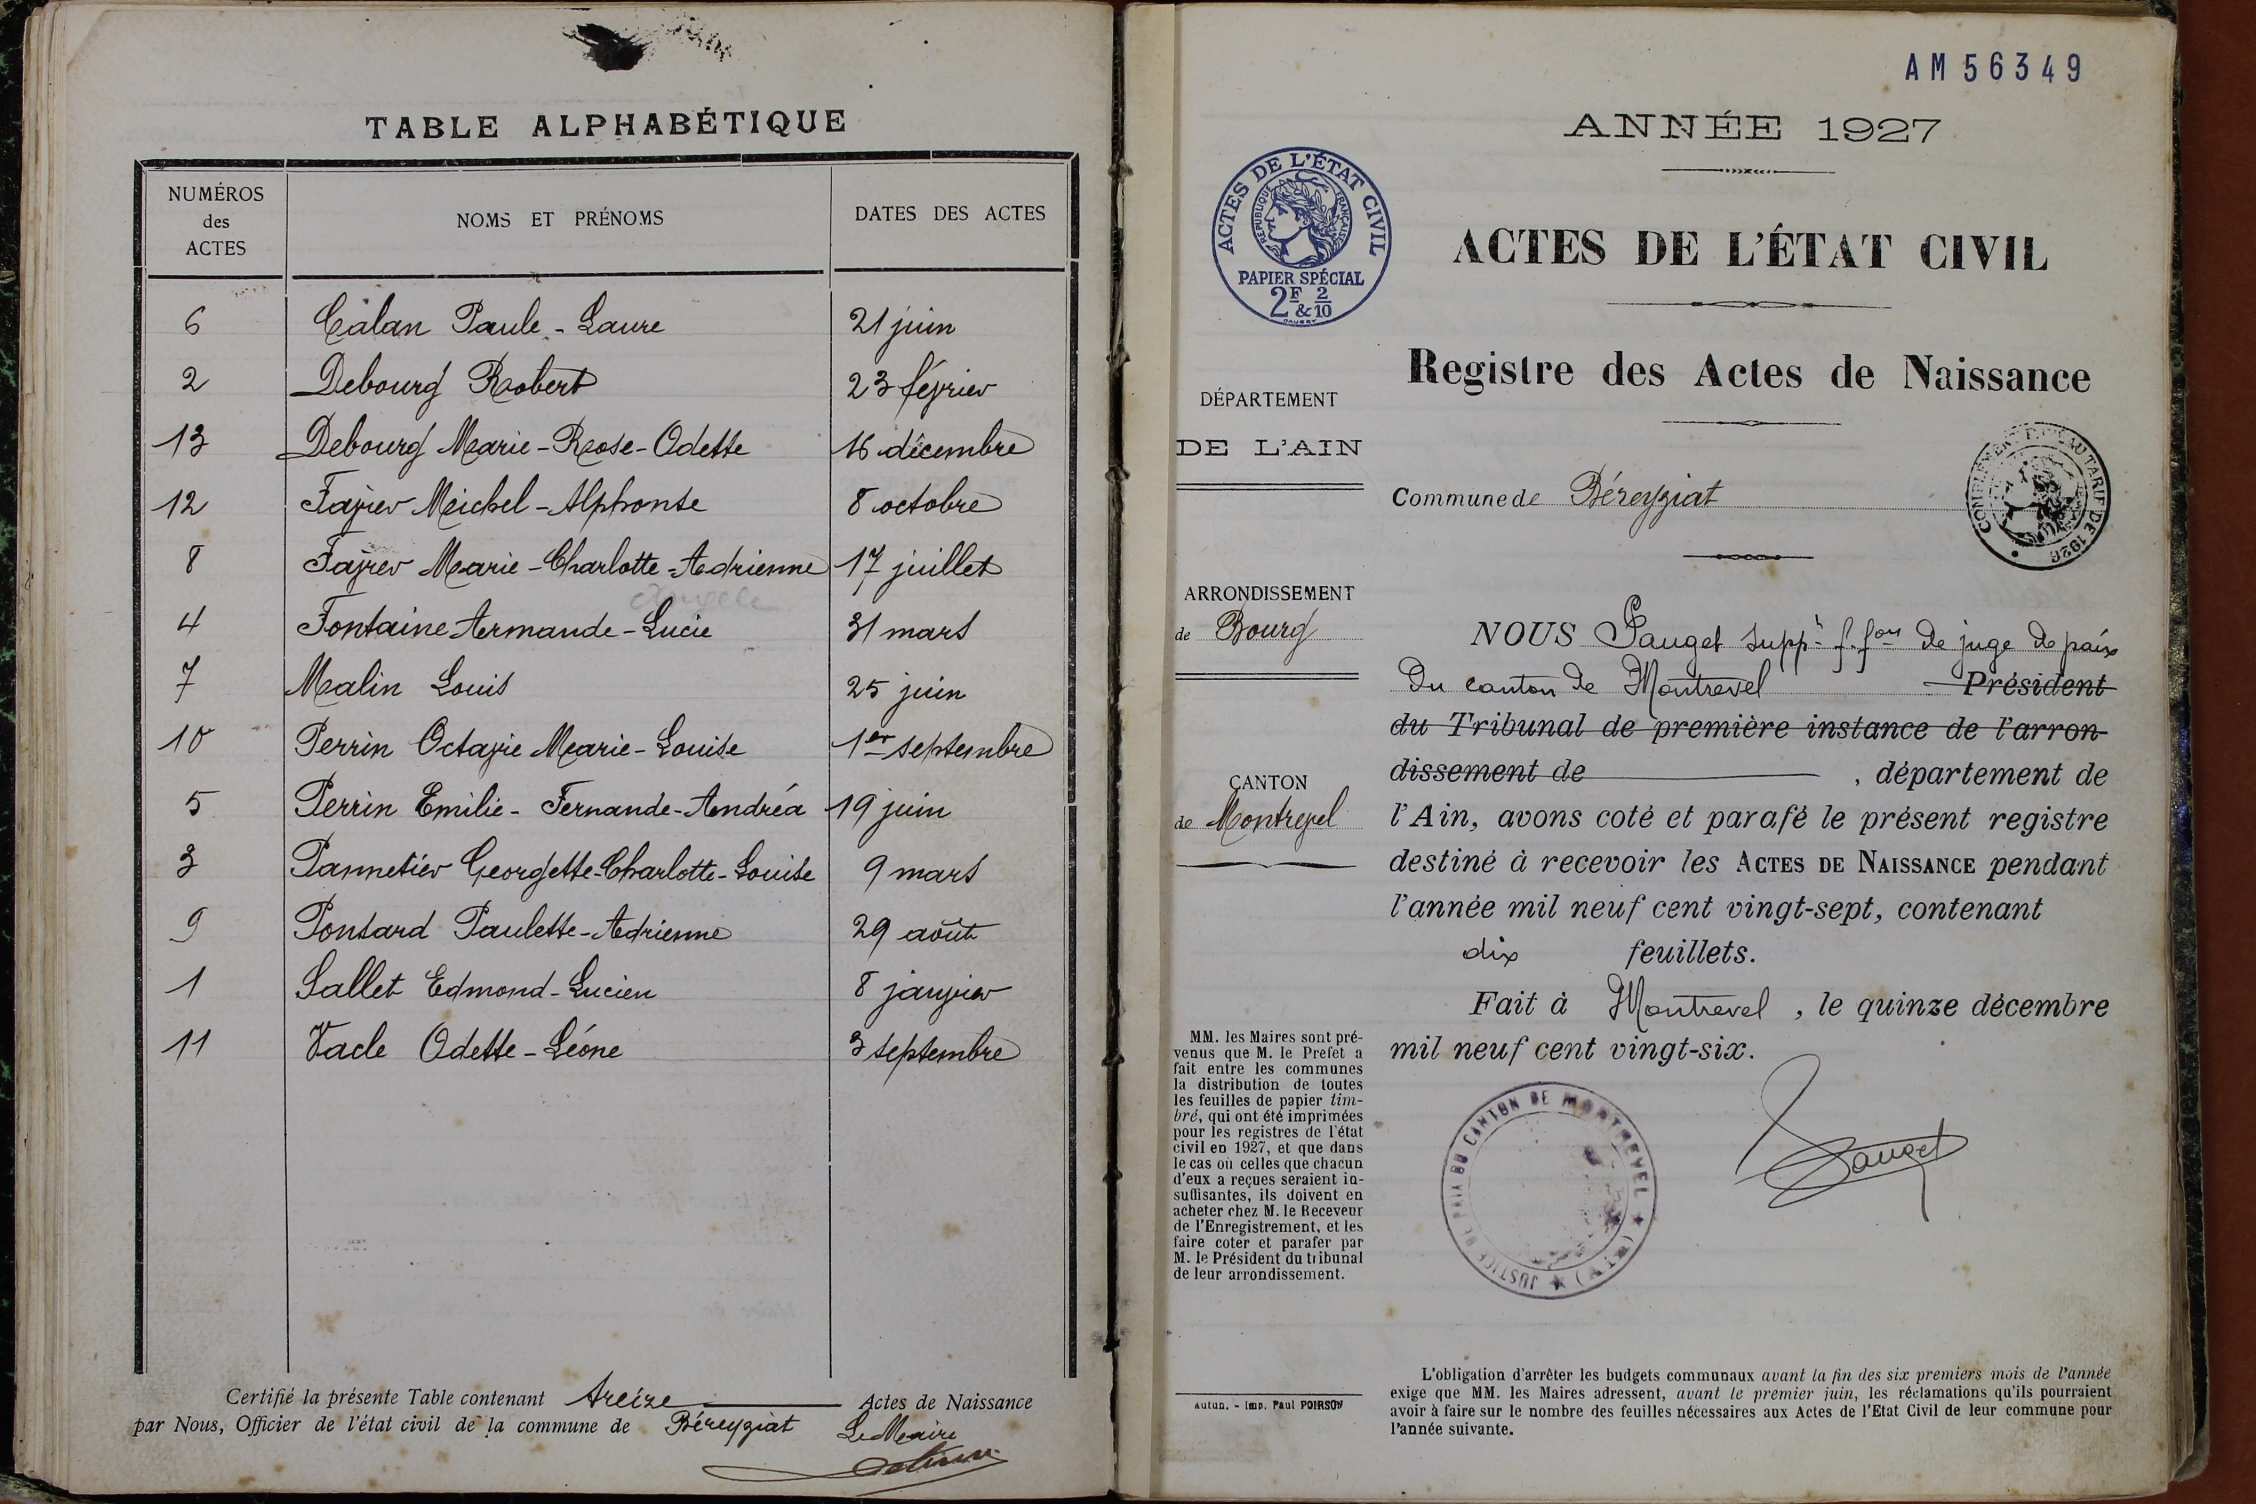 TABLE ALPHABÉTIQUE
NUMÉROS des ACTES	NOMS ET PRÉNOMS	DATES DES ACTES
6	Calan Paule - Laure	21 juin
2	Debourg Robert	23 février
13	Debourg Marie-Rose-Odette	16 décembre
12	Favier Michel-Alphonse	8 octobre
8	Favier Marie-Charlotte-Adrienne	17 juillet
4	Fontaine Armande-Lucie	31 mars
7	Malin Louis	25 juin
10	Perrin Octavie Marie-Louise	1er septembre
5	Perrin Emilie - Fernande-Andréa	19 juin
3	Pannetier Georgette-Charlotte-Louise	9 mars
9	Ponsard Paulette-Adrienne	29 août
1	Sallet Edmond-Lucien	8 janvier
11	Vacle Odette-Léone	3 septembre
Certifié la présente Table contenant treize Actes de Naissance
par Nous, Officier de l'état civil de la commune de Béreyziat Le Maire
AM 56349
ANNÉE 1927
ACTES DE L'ÉTAT CIVIL
RÉPUBLIQUE FRANÇAISE
PAPIER SPÉCIAL
2F & 2/10
ACTES DE L'ÉTAT CIVIL
Registre des Actes de Naissance
DÉPARTEMENT
DE L'AIN
Commune de Béreyziat
TARIF DE 1926
ARRONDISSEMENT
de Bourg
CANTON
de Montrevel
NOUS Pauget suppt f. fons de juge de paix
du canton de Montrevel Président
du Tribunal de première instance de l'arron-
dissement de , département de
l'Ain, avons coté et parafé le présent registre
destiné à recevoir les ACTES DE NAISSANCE pendant
l'année mil neuf cent vingt-sept, contenant
dix feuillets.
Fait à Montrevel, le quinze décembre
mil neuf cent vingt-six.
Pauget
JUSTICE DE PAIX DU CANTON DE MONTREVEL ★ (AIN) ★
MM. les Maires sont pré-
venus que M. le Prefet a
fait entre les communes
la distribution de toutes
les feuilles de papier tim-
bré, qui ont été imprimées
pour les registres de l'état
civil en 1927, et que dans
le cas où celles que chacun
d'eux a reçues seraient in-
suffisantes, ils doivent en
acheter chez M. le Receveur
de l'Enregistrement, et les
faire coter et parafer par
M. le Président du tribunal
de leur arrondissement.
Autun. - Imp. Paul POIRSON
L'obligation d'arrêter les budgets communaux avant la fin des six premiers mois de l'année
exige que MM. les Maires adressent, avant le premier juin, les réclamations qu'ils pourraient
avoir à faire sur le nombre des feuilles nécessaires aux Actes de l'Etat Civil de leur commune pour
l'année suivante.